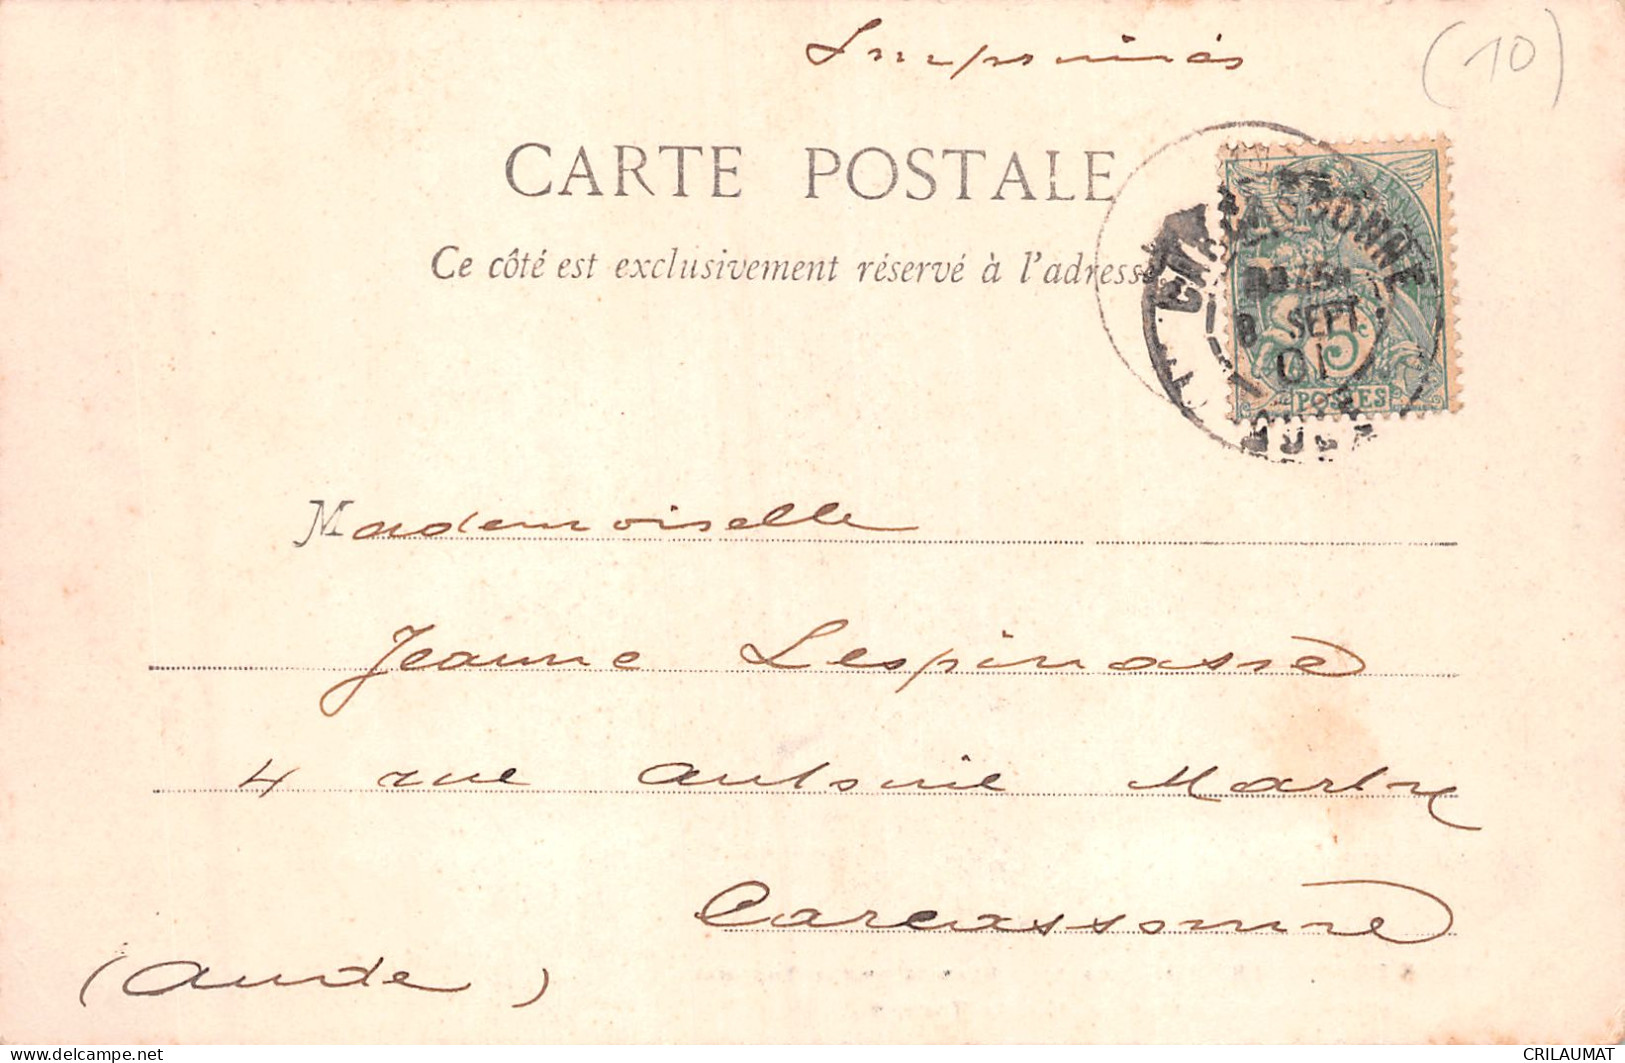 Imprimés
(10)
CARTE POSTALE
Ce côté est exclusivement réservé à l'adresse
CARCASSONNE
8 SEPT
01
AUDE
5c
POSTES
Mademoiselle
Jeanne Lespinasse
4 rue Antoine Marty
Carcassonne
(Aude)
delcampe.net
CRILAUMAT